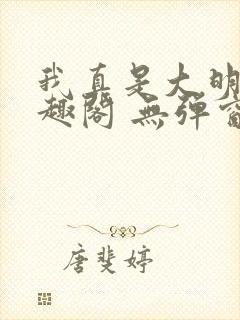 我真是大明
趣阁 無弹窗
唐斐婷